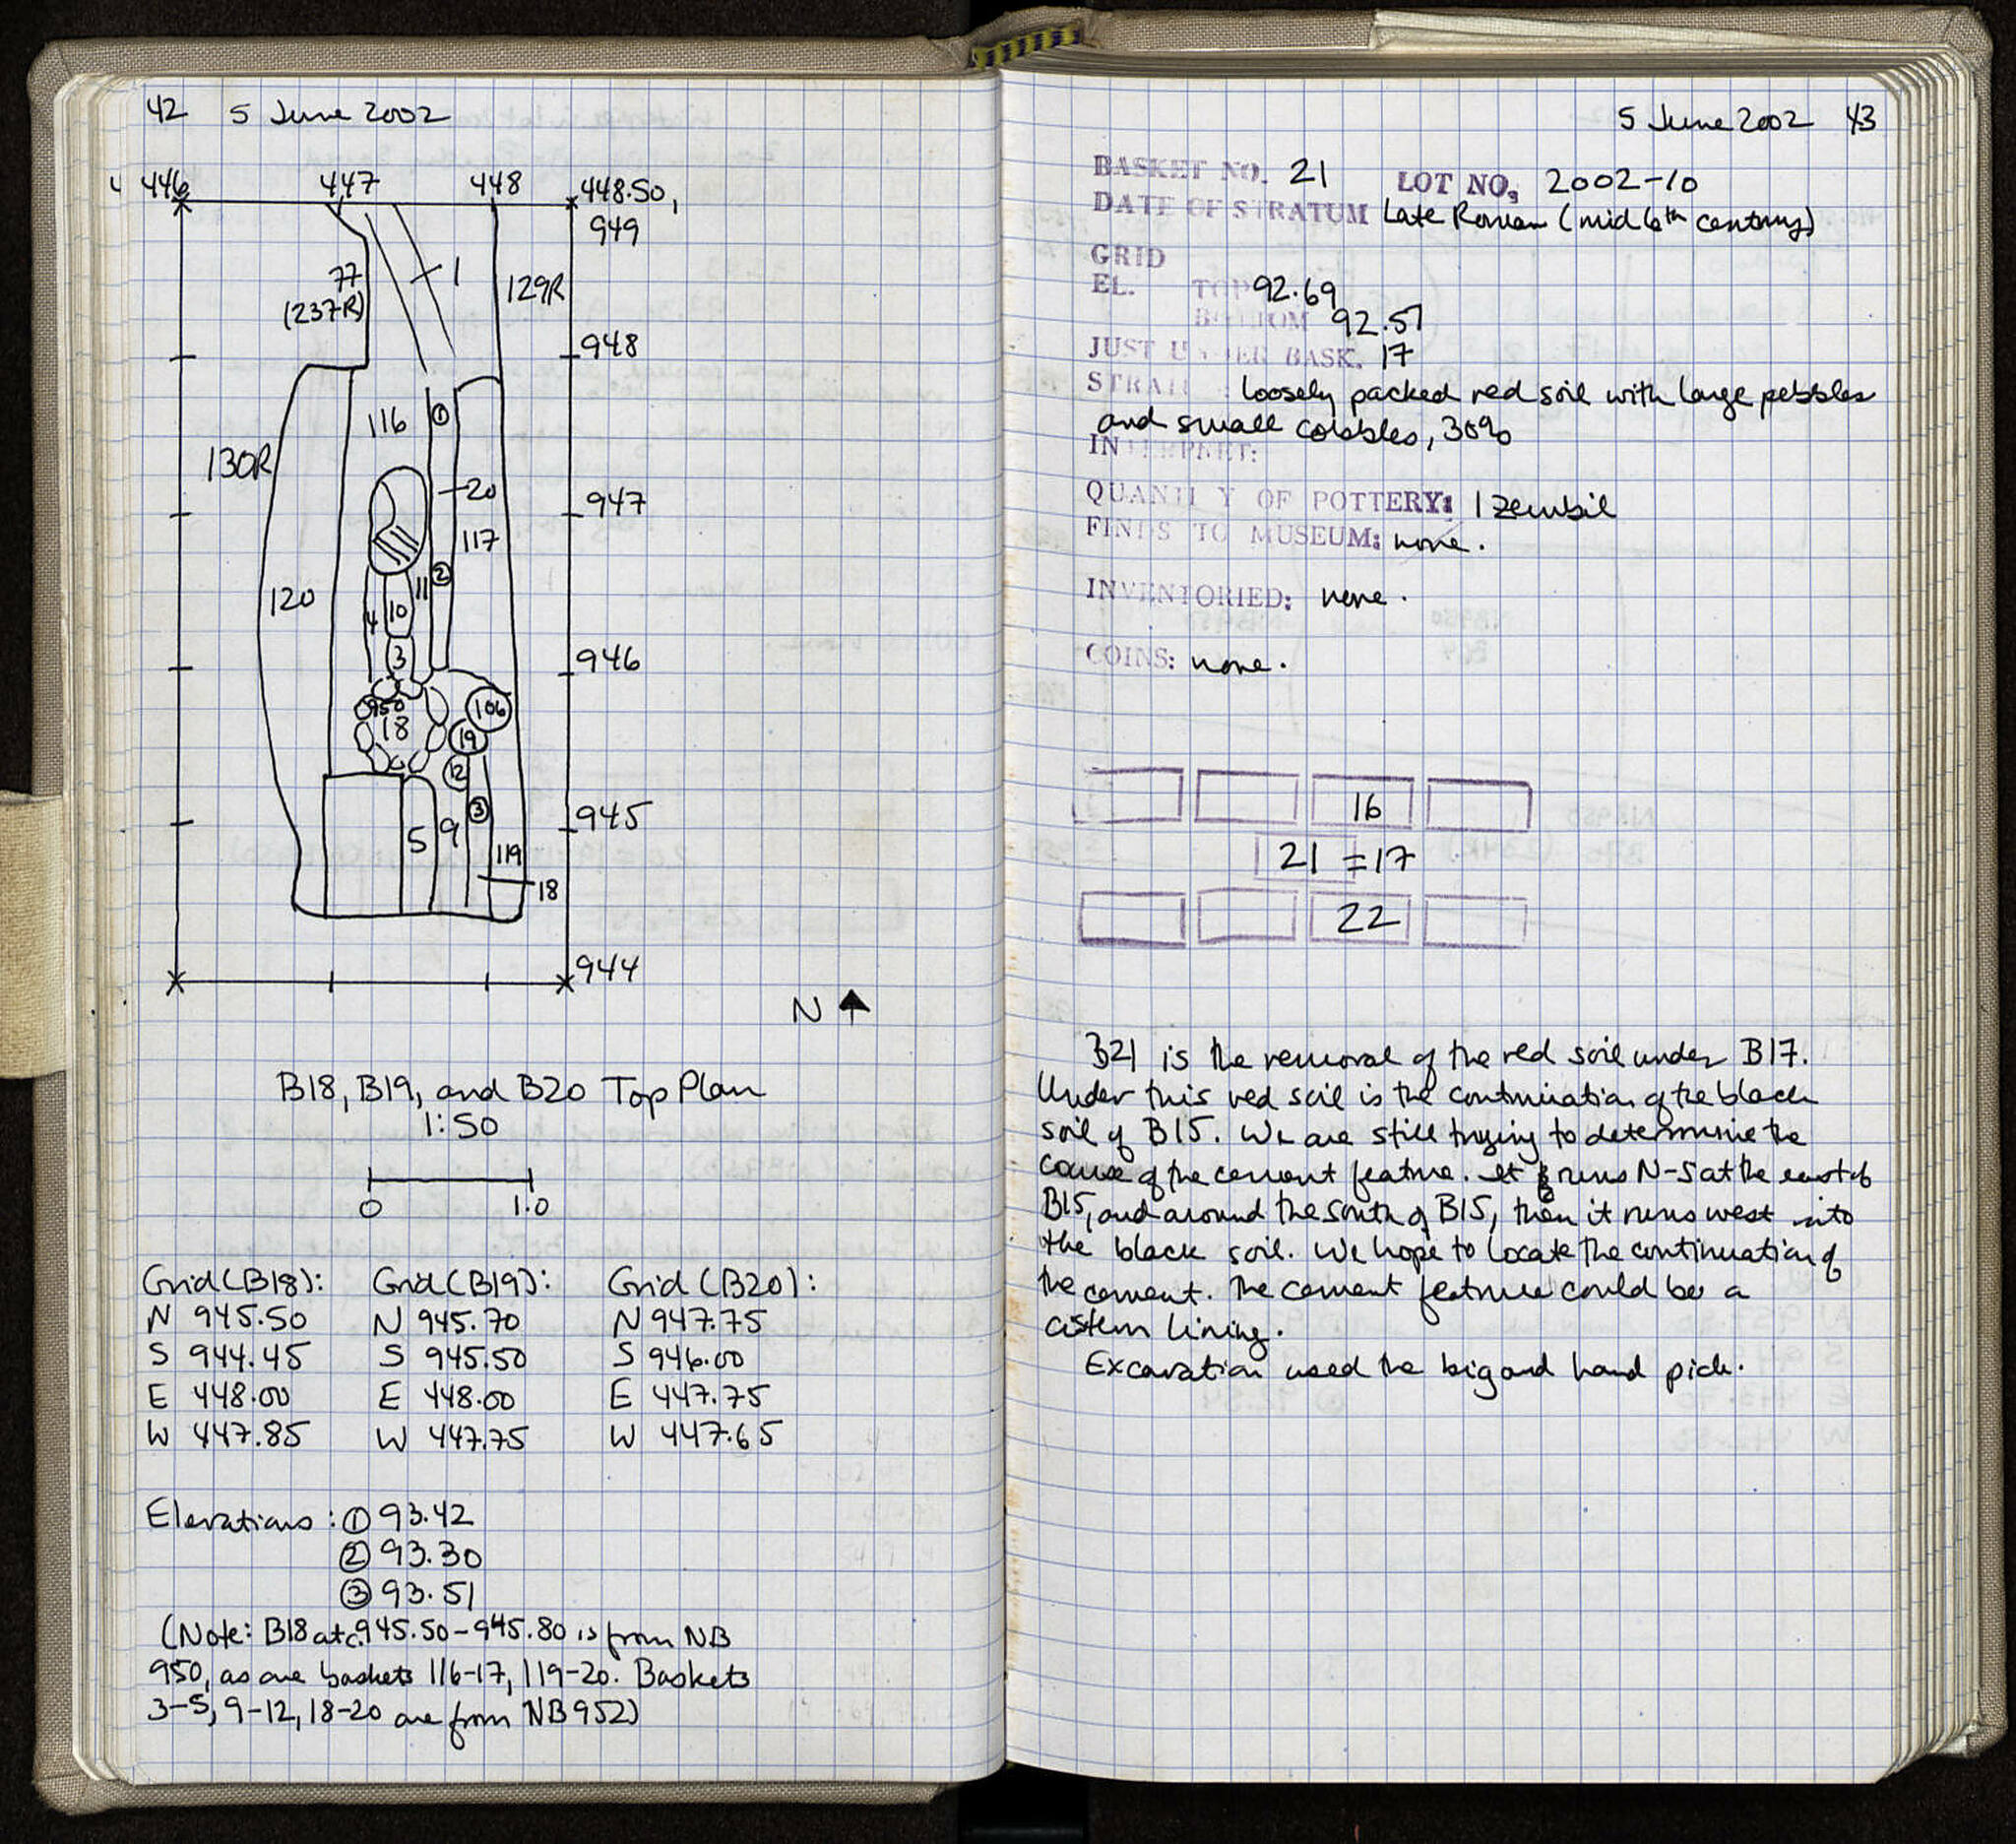 42 5 June 2002
446 447 448 448.50,
949
77
(237R)
1
129R
948
116
1
130R
20
947
117
120
4
10
11
2
3
946
950
18
106
19
12
3
945
5
9
119
18
944
N
B18, B19, and B20 Top Plan
1:50
0 1.0
Grid (B18): Grid (B19): Grid (B20):
N 945.50 N 945.70 N 947.75
S 944.45 S 945.50 S 946.00
E 448.00 E 448.00 E 447.75
W 447.85 W 447.75 W 447.65
Elevations: ① 93.42
② 93.30
③ 93.51
(Note: B18 at c.945.50-945.80 is from NB
950, as are baskets 116-17, 119-20. Baskets
3-5, 9-12, 18-20 are from NB952)
5 June 2002 43
BASKET NO. 21 LOT NO. 2002-10
DATE OF STRATUM Late Roman (mid 6th century)
GRID
EL. TOP 92.69
BOTTOM 92.57
JUST UNDER BASK. 17
STRAT : loosely packed red soil with large pebbles
and small cobbles, 30%
INTERPRET:
QUANTITY OF POTTERY: 1 zembil
FINDS TO MUSEUM: none.
INVENTORIED: none.
COINS: none.
16
21 =17
22
B21 is the removal of the red soil under B17.
Under this red soil is the continuation of the black
soil of B15. We are still trying to determine the
course of the cement feature. It runs N-S at the east of
B15, and around the south of B15, then it runs west into
the black soil. We hope to locate the continuation of
the cement. The cement feature could be a
cistern lining.
Excavation used the big and hand pick.